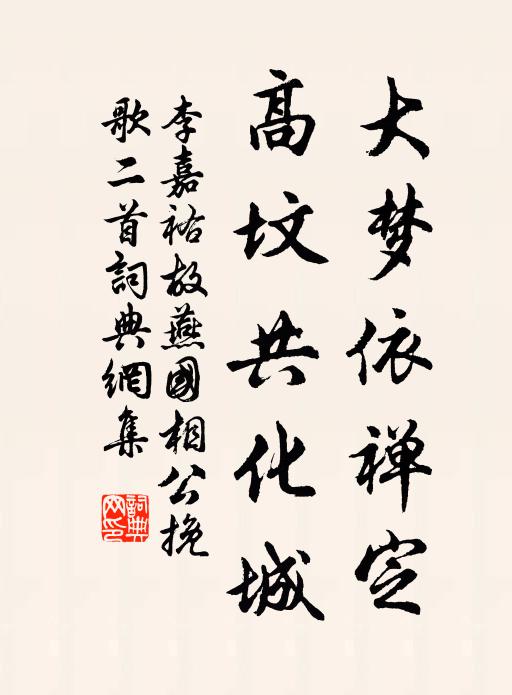 大梦依禅定
高坟共化城
李嘉祐故燕國相公挽
歌二首詞典網集
詞典網印